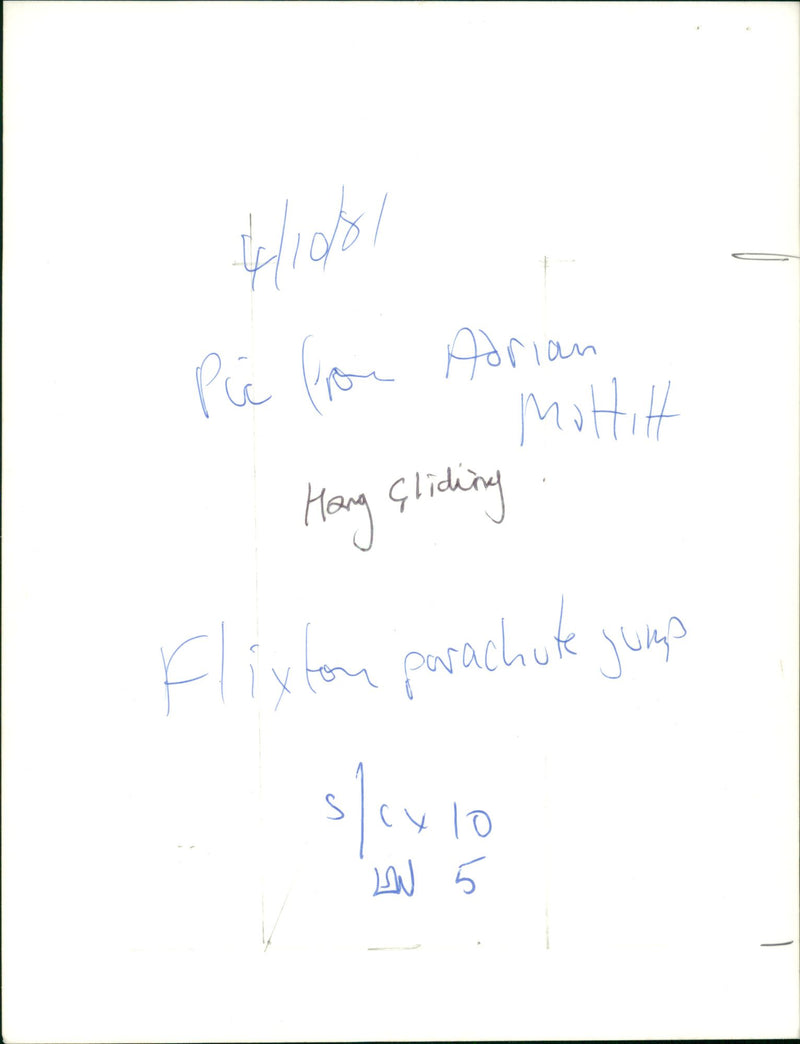 4/10/81
Pic from Adrian
Mottitt
Hang Gliding
Flixton parachute jump
s/c x 10
5